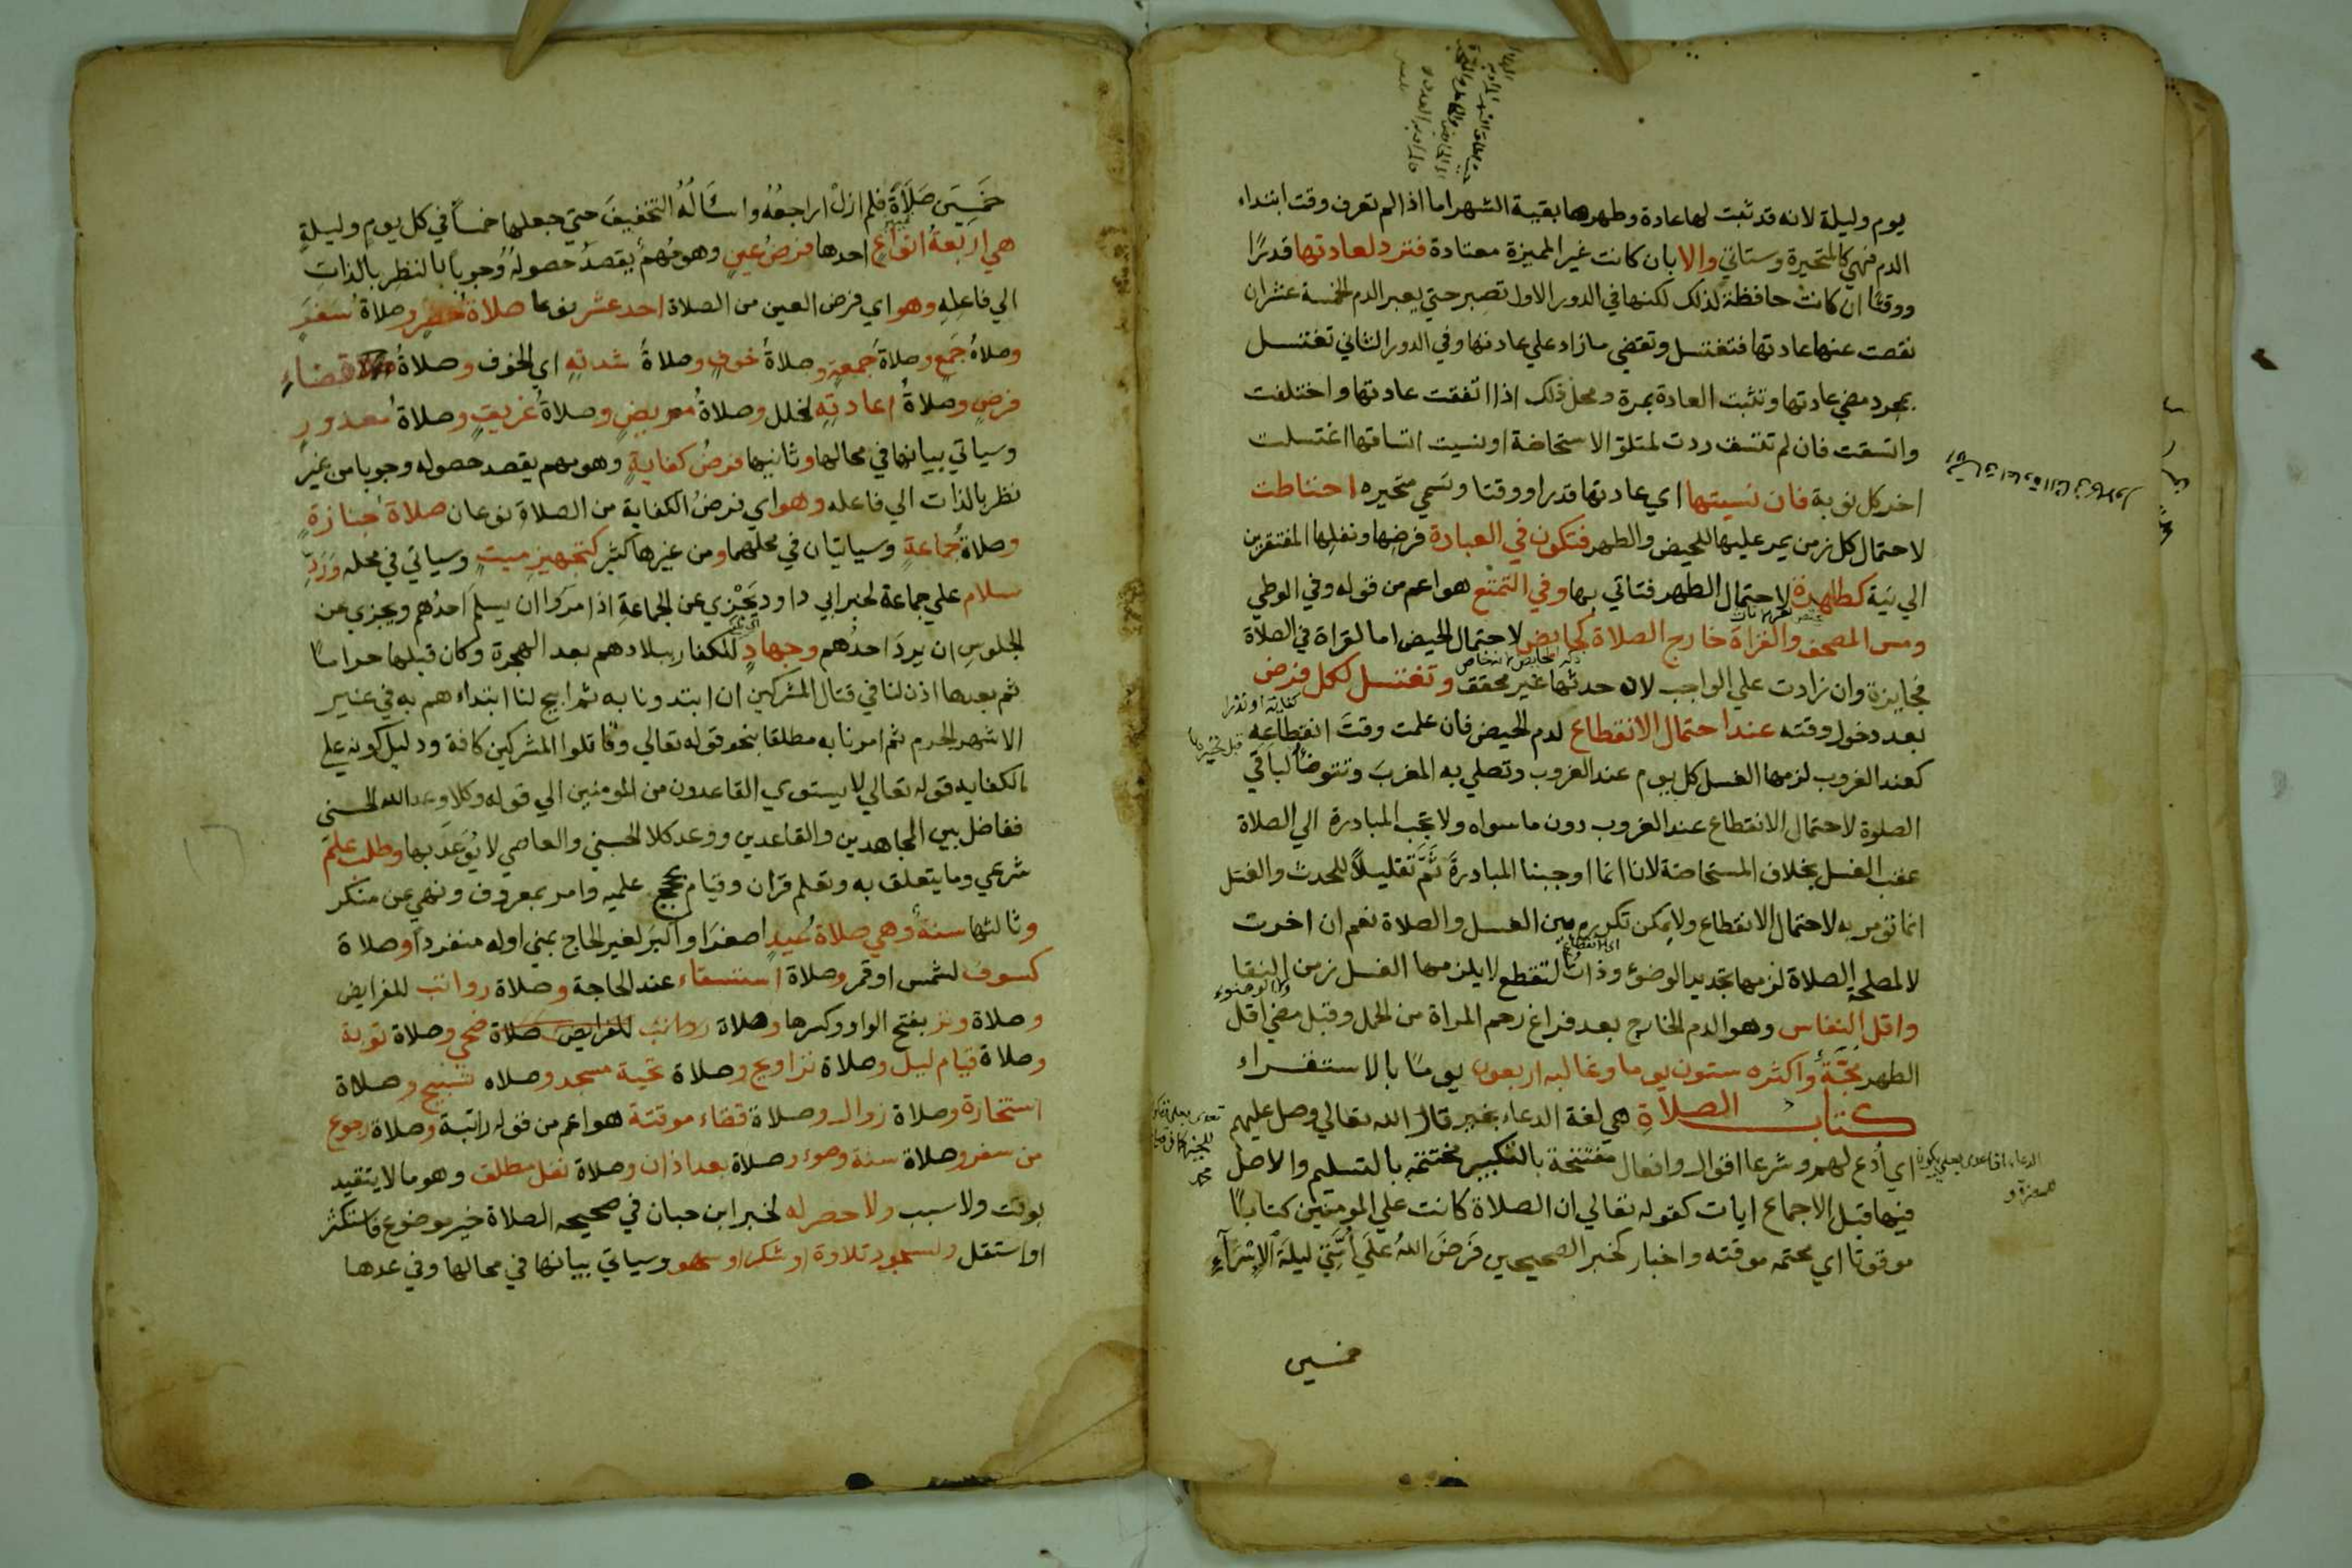 يوم وليلة لانه قد ثبت لها عادة وطهرها بقية الشهر اما اذا لم تعرف وقت ابتداء
الدم فهي كالمتحيرة وستاتي والا بان كانت غير المميزة معتادة فترد لعادتها قدرًا
ووقتًا ان كانت حافظة لذلك لكنها في الدور الاول تصبر حتي يعبر الدم الخمسة عشر ان
نقصت عنها عادتها فتغتسل وتقضي ما زاد علي عادتها وفي الدور الثاني تغتسل
بمجرد مضي عادتها وتثبت العادة بمرة ومحل ذلك اذا اتفقت عادتها واختلفت
واتسقت فان لم تتسق ردت لمتلو الاستحاضة او نسيت اتساقها اغتسلت
اخر كل نوبة فان نسيتها اي عادتها قدرا ووقتا وتسمي متحيره احتاطت
لاحتمال كل زمن يمر عليها للحيض والطهر فتكون في العبادة فرضها ونفلها المفتقرين
الي نية كطاهرة لاحتمال الطهر فتاتي بها وفي التمتع هو اعم من قوله وفي الوطي
ومس المصحف والقراة خارج الصلاة كحايض لاحتمال الحيض اما القراة في الصلاة
فجايزة وان زادت علي الواجب لان حدثها غير محقق وتغتسل لكل فرض
كفاية او نذرا
بعد دخول وقته عند احتمال الانقطاع لدم الحيض فان علمت وقت انقطاعه
كعند الغروب لزمها الغسل كل يوم عند الغروب وتصلي به المغرب وتتوضأ لباقي
الصلوة لاحتمال الانقطاع عند الغروب دون ما سواه ولا تجب المبادرة الي الصلاة
عقب الغسل بخلاف المستحاضة لانا انما اوجبنا المبادرة ثم تقليلًا للحدث والغسل
انما تومر به لاحتمال الانقطاع ولا يمكن تكرره بين الغسل والصلاة نعم ان اخرت
اي انقطاع
لا لمصلحة الصلاة لزمها تجديد الوضوء وذات التقطع لا يلزمها الغسل زمن النقا
واقل النفاس وهو الدم الخارج بعد فراغ رحم المراة من الحمل وقبل مضي اقل
الطهر مجَّة واكثره ستون يوما وغالبه اربعون يومًا بالاستقراء
كتاب الصلاة هي لغة الدعاء بخير قال الله تعالي وصل عليهم
اي أدع لهم وشرعا اقوال وافعال مفتتحة بالتكبير مختتمة بالتسليم والاصل
فيها قبل الاجماع ايات كقوله تعالي ان الصلاة كانت علي المومنين كتابًا
موقوتا اي محتمه موقته واخبار كخبر الصحيحين فَرَضَ اللهُ علَي أُمَّتِي ليلةَ الإسْرَآءِ
خمسين
خَمْسِينَ صَلَاةً فلم ازلْ اراجعُهُ واسْأَلُهُ التخفيفَ حتي جعلها خمسًا في كل يومٍ وليلةٍ
هي اربعةُ انواعٍ احدها فرضُ عينٍ وهو مُهمٌ يقصدُ حصولهُ وُجوبًا بالنظر بالذاتِ
الي فاعلِهِ وهو اي فرض العين من الصلاة احد عشر نوعا صلاةُ حضرٍ وصلاةُ سَفَرٍ
وصلاةُ جَمعٍ وصلاةُ جُمعةٍ وصلاةُ خوفٍ وصلاةُ شدتِهِ اي الخوف وصلاةُ قضاءِ
فرضٍ وصلاةُ اعادتِهِ لخلل وصلاةُ مريضٍ وصلاةُ غريقٍ وصلاةُ معذورٍ
وسياتي بيانها في محالها وثانيها فرضُ كفايةٍ وهو مهم يقصد حصوله وجوبا من غير
نظر بالذات الي فاعله وهو اي فرضُ الكفاية من الصلاةِ نوعان صلاةُ جنازةٍ
وصلاةُ جماعةٍ وسياتيان في محلهما ومن غيرها كثير كتجهيزِ ميتٍ وسياتي في محله وَرَدِّ
سلام علي جماعة لخبر ابي داود يَجْزِي عن الجماعةِ اذا مرَوا ان يسلمَ احدُهم ويجزي عن
الجلوسِ ان يردَ احدُهم وجهادٍ للكفار ببلادهم بعد الهجرة وكان قبلها حراما
ثم بعدها اذن لنا في قتال المشركين ان ابتدونا به ثم ابيح لنا ابتداءهم به في غير
الاشهر الحرم ثم امرنا به مطلقا بنحو قوله تعالي وقاتلوا المشركين كافة ودليل كونه علي
الكفايه قوله تعالي لا يستوي القاعدون من المومنين الي قوله وكلا وعد الله الحسني
ففاضل بين المجاهدين والقاعدين ووعد كلا الحسني والعاصي لا يُوعَدُ بها وطلب علمٍ
شرعي وما يتعلق به وتعلم قران وقيام بحجج علميه وامر بمعروف ونهي عن منكر
وثالثها سنةٌ وهي صلاةُ عيدٍ اصغرَ او اكبرَ لغير الحاج بمني اوله منفردًا وصلاة
كسوف لشمس او قمر وصلاة استسقاء عند الحاجة وصلاة رواتب للفرايض
وصلاة وتر بفتح الواو وكسرها وصلاة رواتب للفرايض صلاة ضحي وصلاة توبة
وصلاة قيام ليل وصلاة تراويح وصلاة تحية مسجد وصلاه تسبيح وصلاة
استخارة وصلاة زوال وصلاة قضاء موقتة هو اعم من قوله راتبة وصلاة رجوع
من سفر وصلاة سنة وضوء وصلاة بعد اذان وصلاة نفل مطلق وهو ما لا يتقيد
بوقت ولا سبب ولا حصر له لخبر ابن حبان في صحيحه الصلاة خير موضوع فاستكثر
او استقل وسجود تلاوة او شكر او سهو وسياتي بيانها في محالها وفي عدها